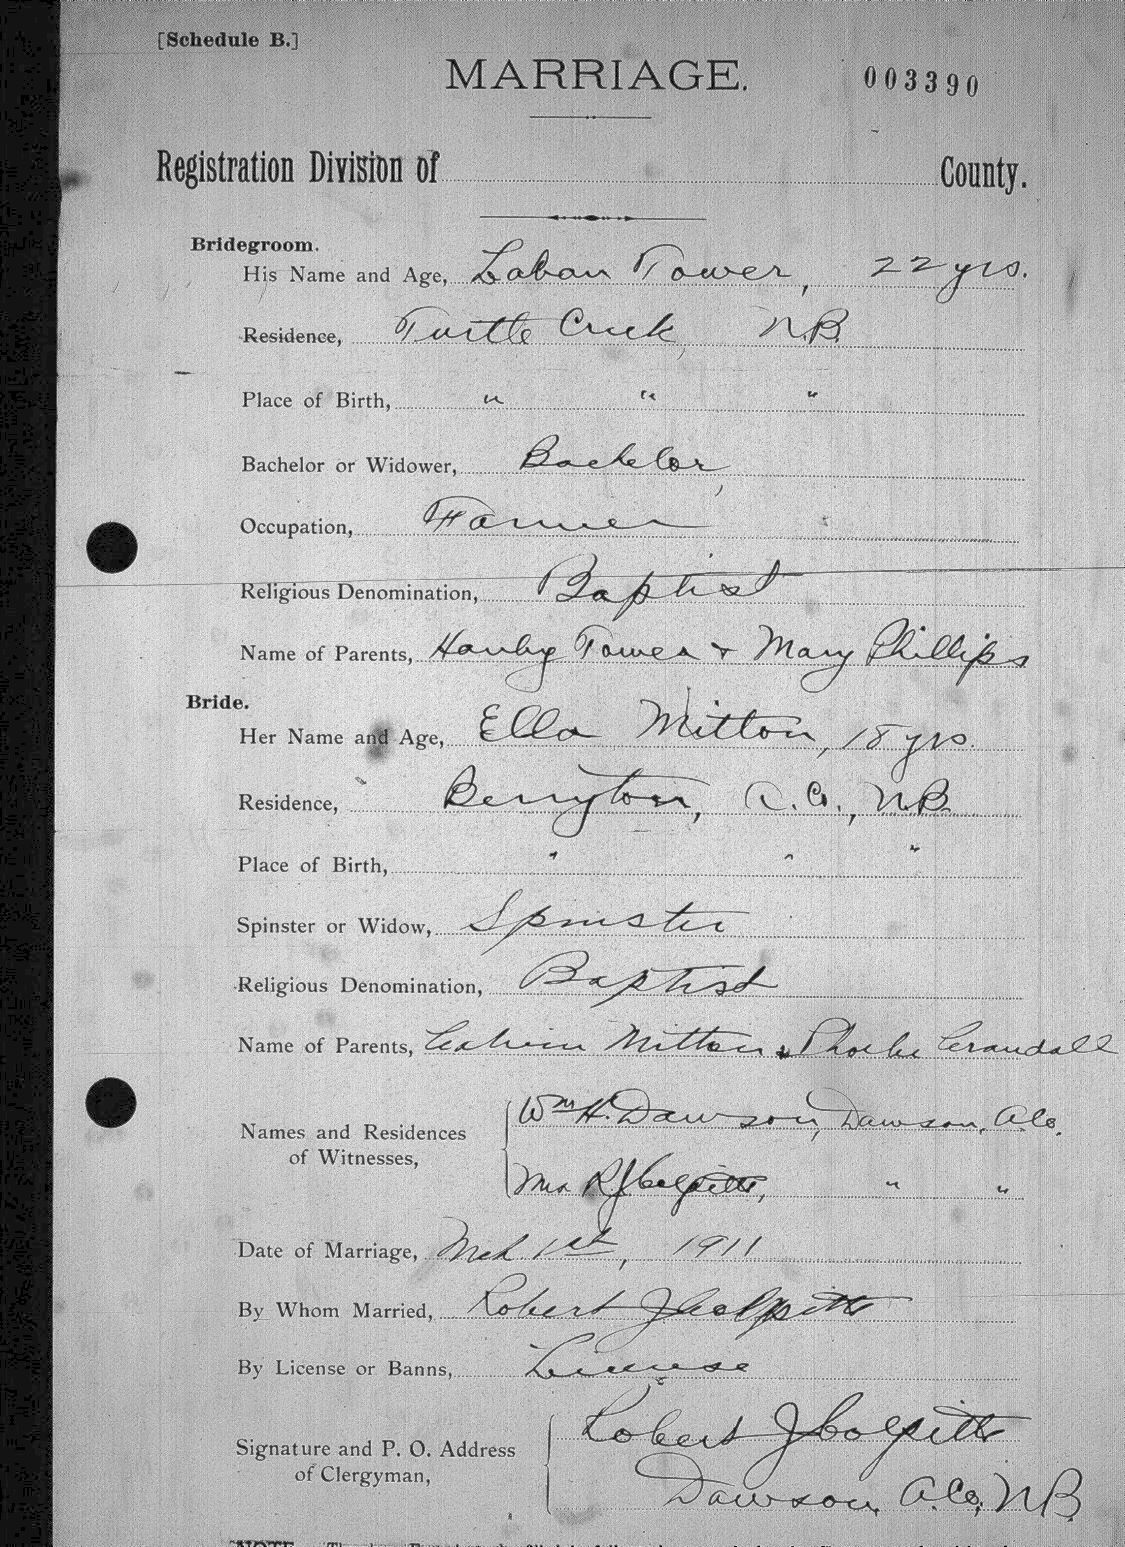 [Schedule B.]
MARRIAGE. 003390
Registration Division of County.
Bridegroom.
His Name and Age, Laban Tower, 22 yrs.
Residence, Turtle Creek, N.B.
Place of Birth, " " "
Bachelor or Widower, Bachelor,
Occupation, Farmer
Religious Denomination, Baptist
Name of Parents, Tower + Mary Phillips
Bride.
Her Name and Age, Ella Mitton, 18 yrs.
Residence, Berryton, A. Co., N.B.
Place of Birth, " " "
Spinster or Widow, Spinster
Religious Denomination, Baptist
Name of Parents, Calvin Mitton & Phoebe Crandall
Names and Residences
of Witnesses,
Wm H. Dawson, Dawson, A. Co.
Mrs R J Colpitts, " "
Date of Marriage, Mch 1st, 1911
By Whom Married, Robert J Colpitts
By License or Banns, License
Signature and P. O. Address
of Clergyman,
Robert J Colpitts
Dawson, A. Co., N.B.